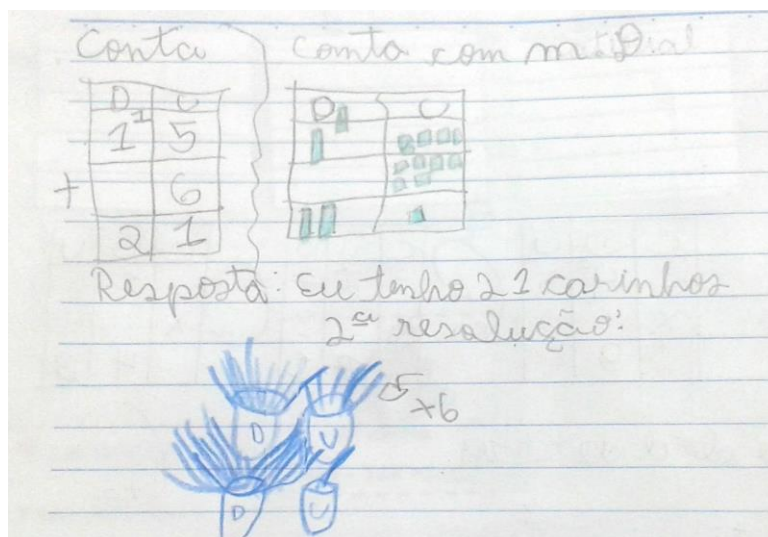 Conta Conta com material
D U D U
1
1 5
+ 6
2 1
Resposta: Eu tenho 21 carinhos
2ª resolução:
5
+6
D U
D U